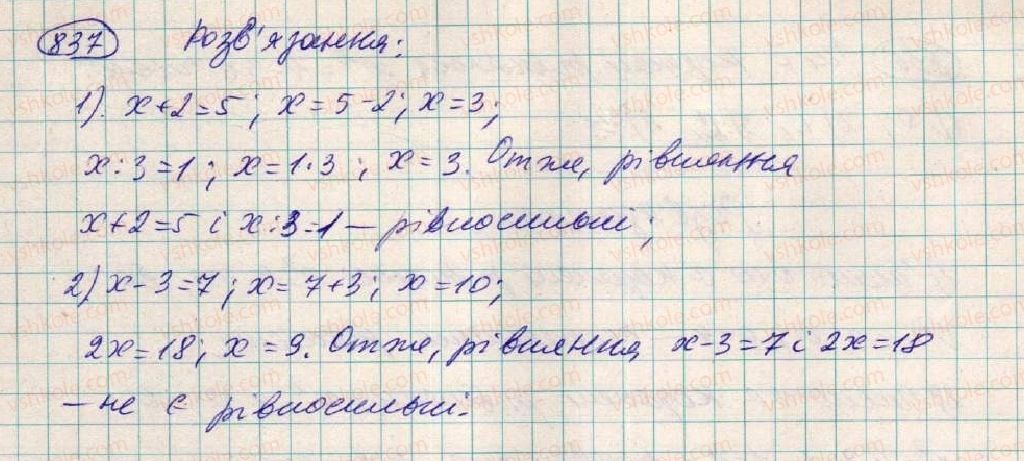 837 Розв'язання:
1). x+2=5; x=5-2; x=3;
x:3=1; x=1·3; x=3. Отже, рівняння
x+2=5 і x:3=1 — рівносильні;
2) x-3=7; x=7+3; x=10;
2x=18; x=9. Отже, рівняння x-3=7 і 2x=18
— не є рівносильні.